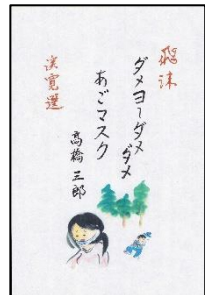 飛沫
ダメヨ〜ダメダメ
あごマスク
高橋 三郎
渓寛選